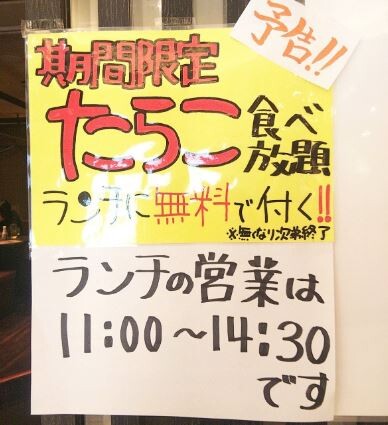 予告!!
期間限定
たらこ食べ
放題
ランチに無料で付く!!
※無くなり次第終了
ランチの営業は
11:00～14:30
です